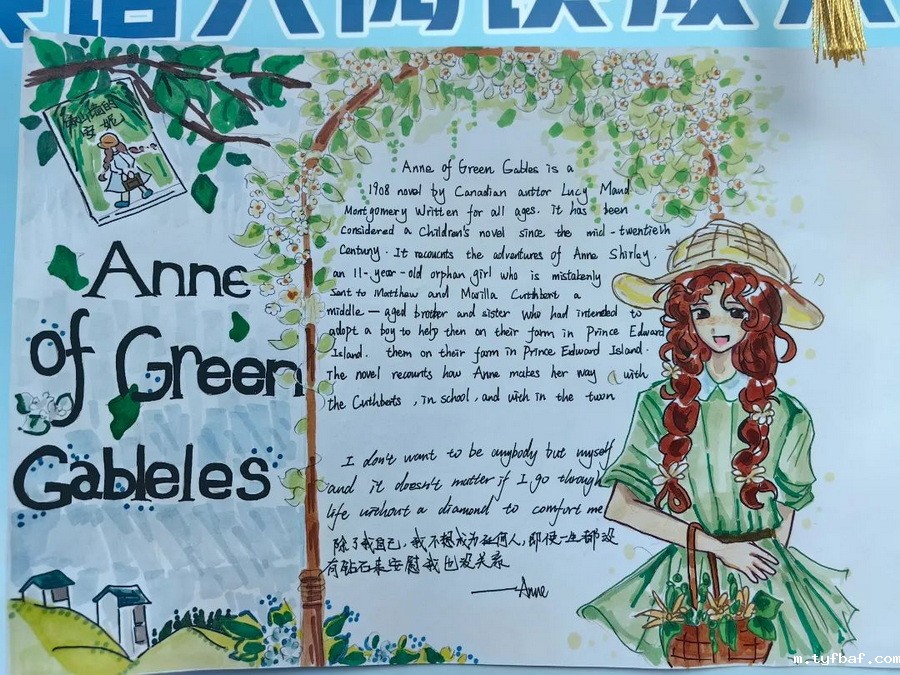 绿山墙的
安妮
Anne
of Green
Gableles
Anne of Green Gables is a
1908 novel by Canadian author Lucy Maud
Montgomery Written for all ages. it has been
Considered a Children's novel since the mid-twentieth
Century. It recounts the adventures of Anne Shirley.
an 11-year-old orphan girl who is mistakenly
Sent to Matthew and Marilla Cuthbert a
middle—aged brother and sister who had intended to
adopt a boy to help then on their farm in Prince Edward
Island. them on their farm in Prince Edward Island.
The novel recounts how Anne makes her way with
the Cuthberts, in school, and with in the town
I don't want to be anybody but myself
and it doesn't matter if I go through
life without a diamond to comfort me
除了我自己，我不想成为任何人，即使一生都没
有钻石来安慰我也没关系
——Anne
m.tyfbaf.com